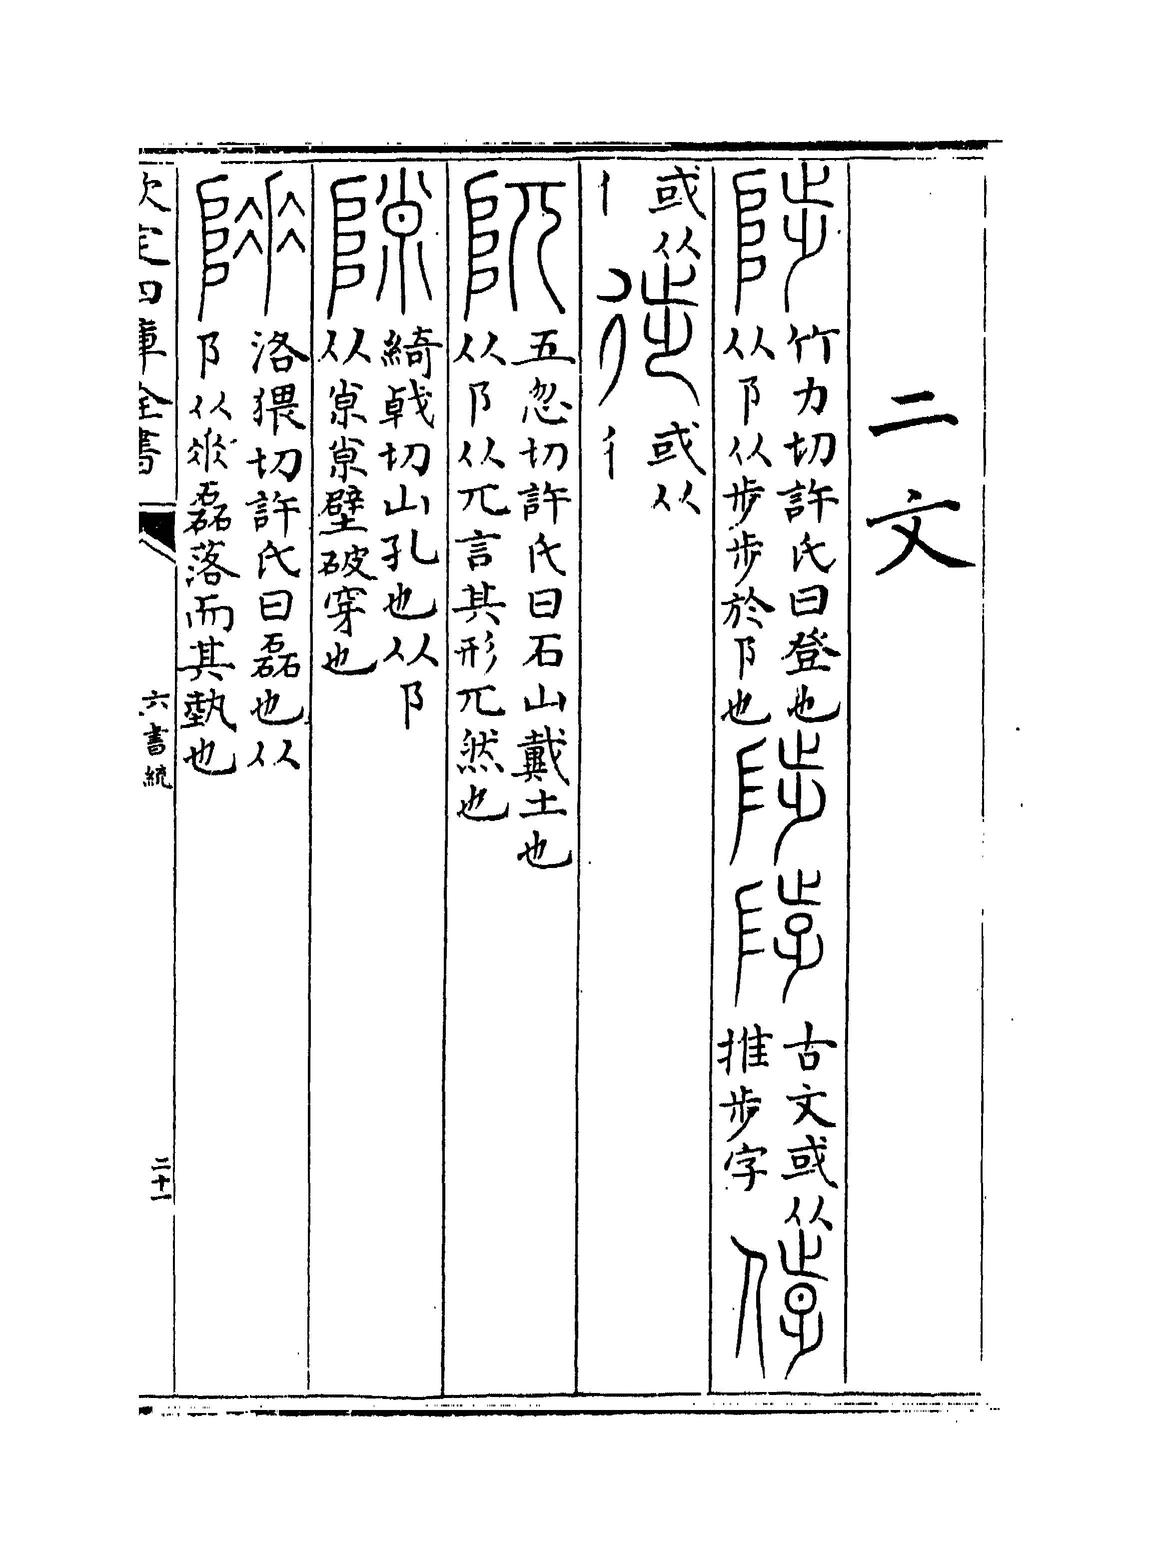 二文
陟
竹力切許氏曰登也
从阝从步步於阝也
古文或从
推步字
或从
亻
或从
彳
阢
五忽切許氏曰石山戴土也
从阝从兀言其形兀然也
隙
綺戟切山孔也从阝
从𡭴𡭴壁破穿也
洛猥切許氏曰磊也从
阝从磊落而其埶也
欽定四庫全書
六書統
二十一